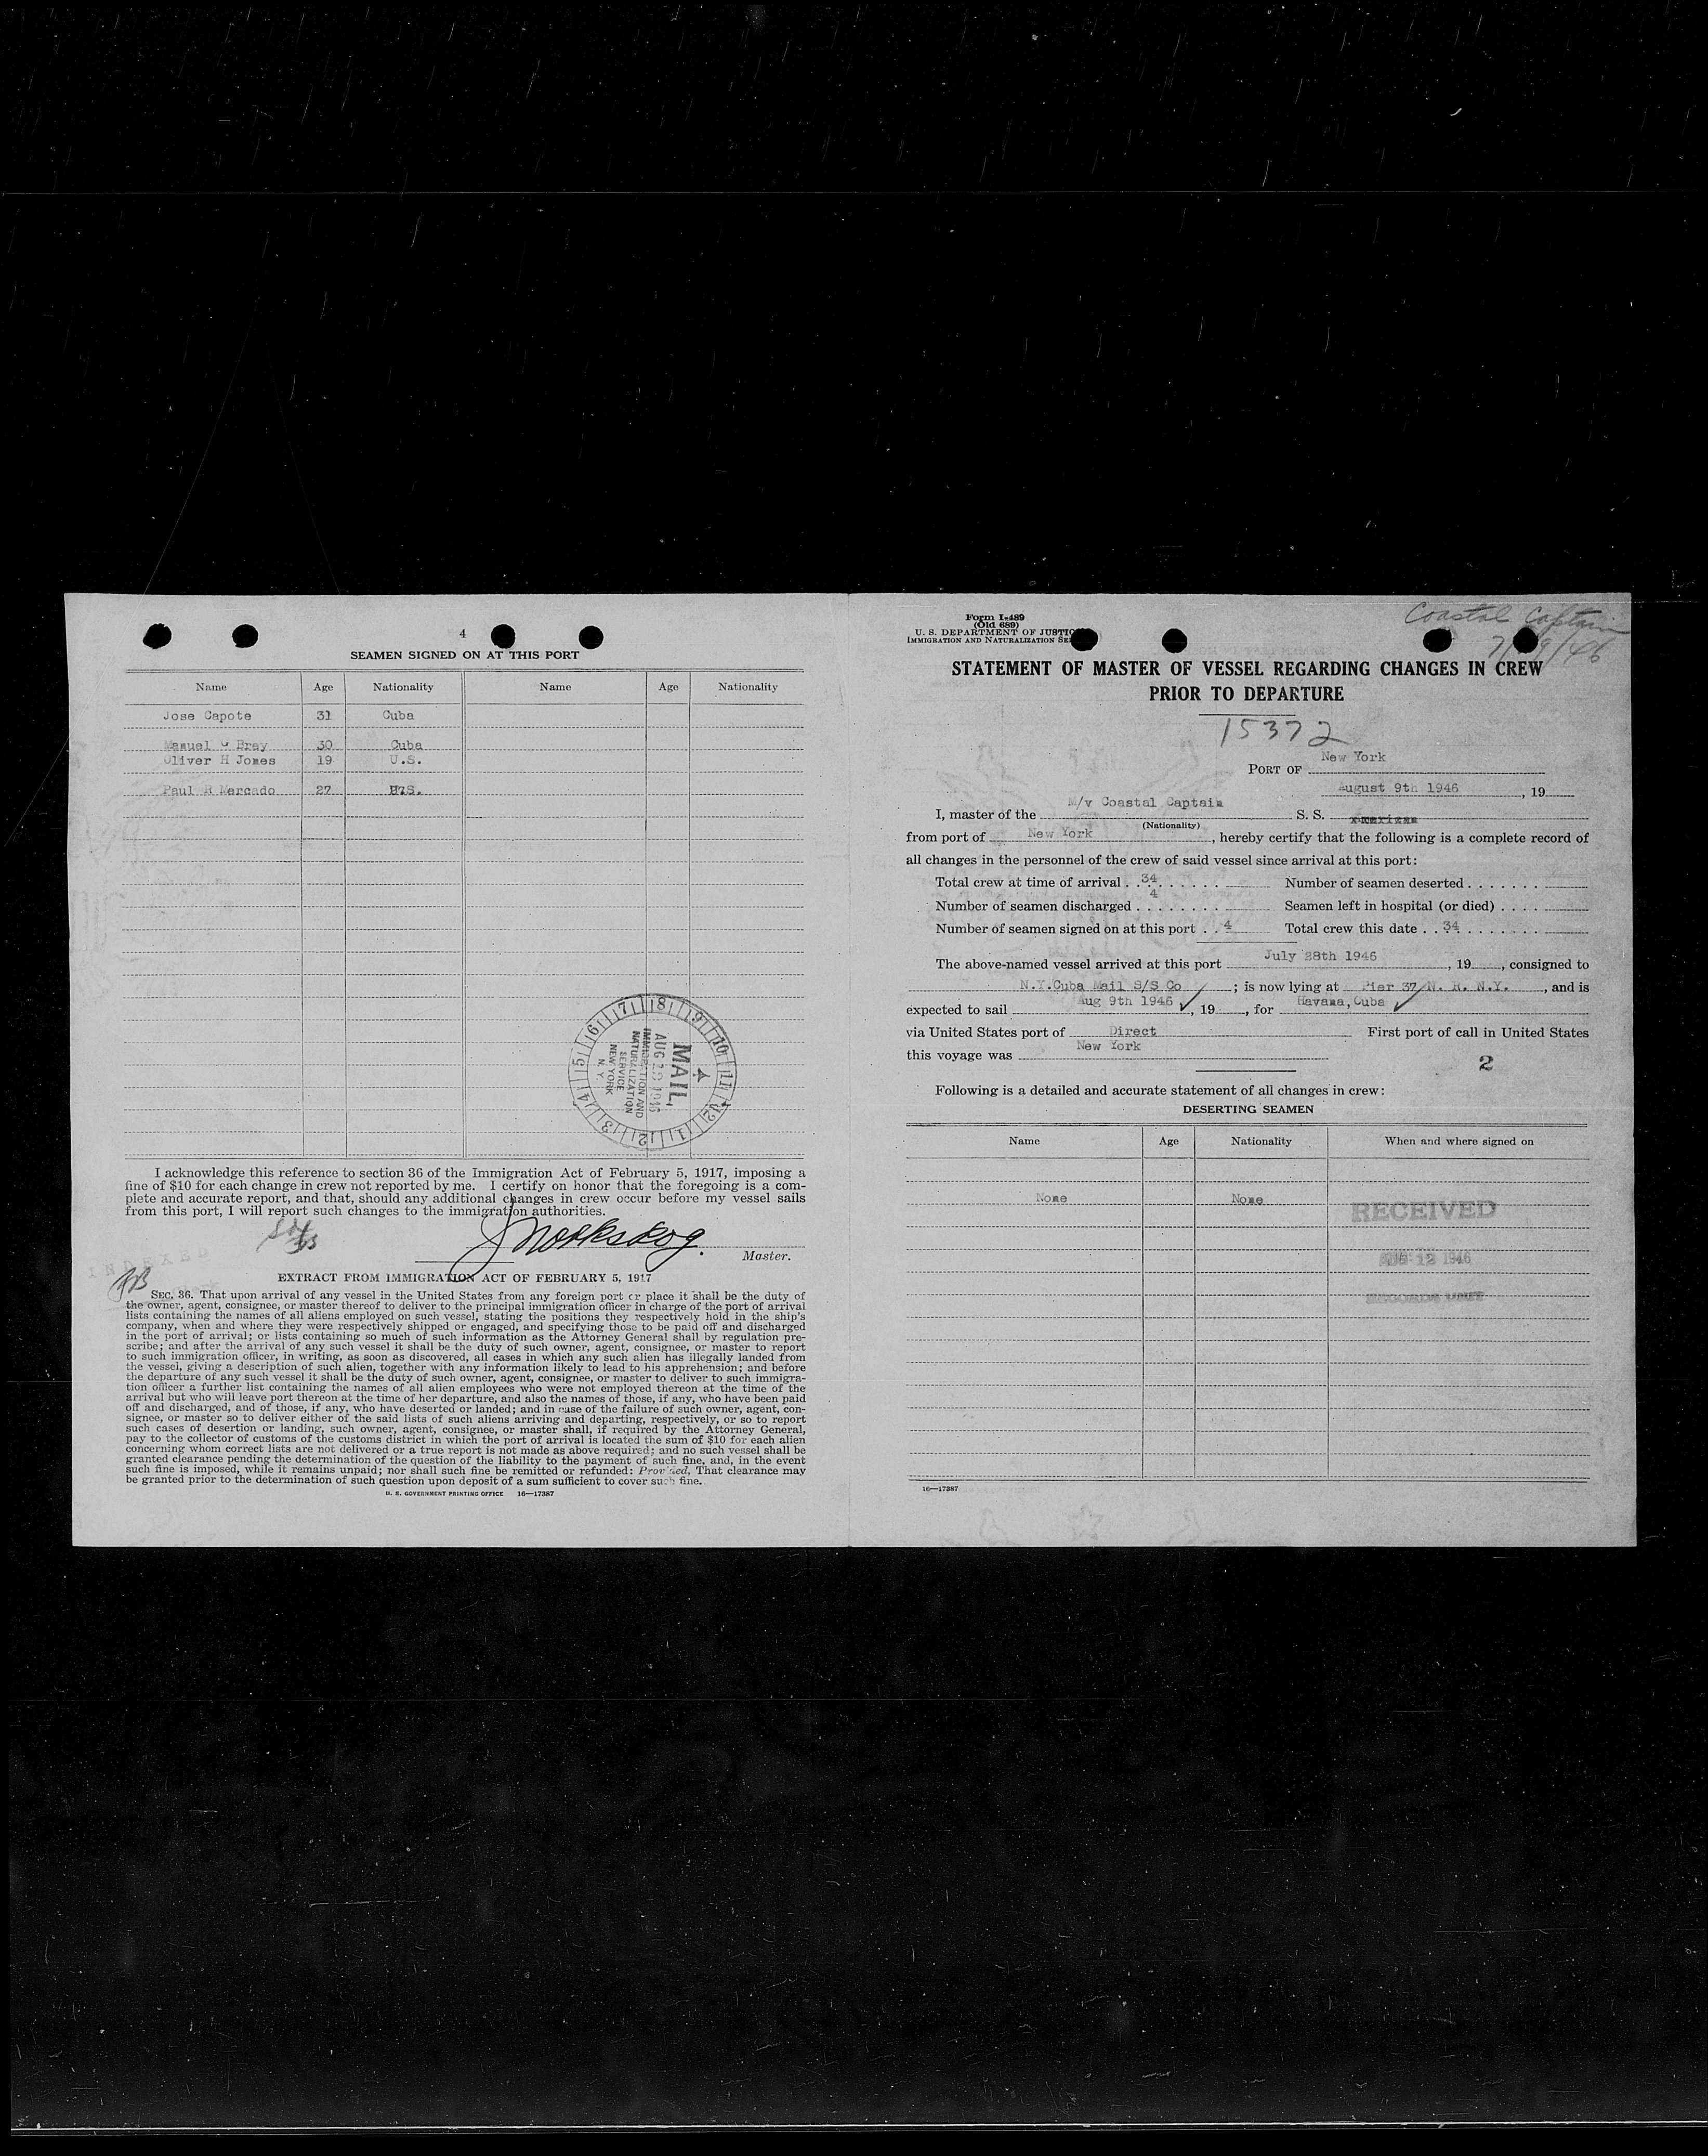 4
SEAMEN SIGNED ON AT THIS PORT
Name Age Nationality Name Age Nationality
Jose Capote 31 Cuba
Manuel Bray 30 Cuba
Oliver H Jones 19 U.S.
Paul R Mercado 27 U.S.
MAIL
AUG 1946
IMMIGRATION AND
NATURALIZATION
SERVICE
NEW YORK
N. Y.
1 2 3 4 5 6 7 8 9 10 11 12
I acknowledge this reference to section 36 of the Immigration Act of February 5, 1917, imposing a
fine of $10 for each change in crew not reported by me. I certify on honor that the foregoing is a com-
plete and accurate report, and that, should any additional changes in crew occur before my vessel sails
from this port, I will report such changes to the immigration authorities.
Master.
INDEXED
EXTRACT FROM IMMIGRATION ACT OF FEBRUARY 5, 1917
SEC. 36. That upon arrival of any vessel in the United States from any foreign port or place it shall be the duty of
the owner, agent, consignee, or master thereof to deliver to the principal immigration officer in charge of the port of arrival
lists containing the names of all aliens employed on such vessel, stating the positions they respectively hold in the ship's
company, when and where they were respectively shipped or engaged, and specifying those to be paid off and discharged
in the port of arrival; or lists containing so much of such information as the Attorney General shall by regulation pre-
scribe; and after the arrival of any such vessel it shall be the duty of such owner, agent, consignee, or master to report
to such immigration officer, in writing, as soon as discovered, all cases in which any such alien has illegally landed from
the vessel, giving a description of such alien, together with any information likely to lead to his apprehension; and before
the departure of any such vessel it shall be the duty of such owner, agent, consignee, or master to deliver to such immigra-
tion officer a further list containing the names of all alien employees who were not employed thereon at the time of the
arrival but who will leave port thereon at the time of her departure, and also the names of those, if any, who have been paid
off and discharged, and of those, if any, who have deserted or landed; and in case of the failure of such owner, agent, con-
signee, or master so to deliver either of the said lists of such aliens arriving and departing, respectively, or so to report
such cases of desertion or landing, such owner, agent, consignee, or master shall, if required by the Attorney General,
pay to the collector of customs of the customs district in which the port of arrival is located the sum of $10 for each alien
concerning whom correct lists are not delivered or a true report is not made as above required; and no such vessel shall be
granted clearance pending the determination of the question of the liability to the payment of such fine, and, in the event
such fine is imposed, while it remains unpaid; nor shall such fine be remitted or refunded: Provided, That clearance may
be granted prior to the determination of such question upon deposit of a sum sufficient to cover such fine.
U. S. GOVERNMENT PRINTING OFFICE 16—17387
Form I-489
(Old 689)
U. S. DEPARTMENT OF JUSTICE
IMMIGRATION AND NATURALIZATION
Coastal Captain
STATEMENT OF MASTER OF VESSEL REGARDING CHANGES IN CREW
PRIOR TO DEPARTURE
15372
PORT OF New York
August 9th 1946, 19
I, master of the M/v Coastal Captain S. S.
(Nationality)
from port of New York, hereby certify that the following is a complete record of
all changes in the personnel of the crew of said vessel since arrival at this port:
Total crew at time of arrival . . 34 Number of seamen deserted
Number of seamen discharged 4 Seamen left in hospital (or died)
Number of seamen signed on at this port . . 4 Total crew this date . . 34
The above-named vessel arrived at this port July 28th 1946, 19, consigned to
N.Y.Cuba Mail S/S Co ; is now lying at Pier 37 N. R. N.Y., and is
expected to sail Aug 9th 1946, 19, for Havana, Cuba
via United States port of Direct First port of call in United States
this voyage was New York
2
Following is a detailed and accurate statement of all changes in crew:
DESERTING SEAMEN
Name Age Nationality When and where signed on
None None
RECEIVED
AUG 12 1946
RECORDS UNIT
16—17387